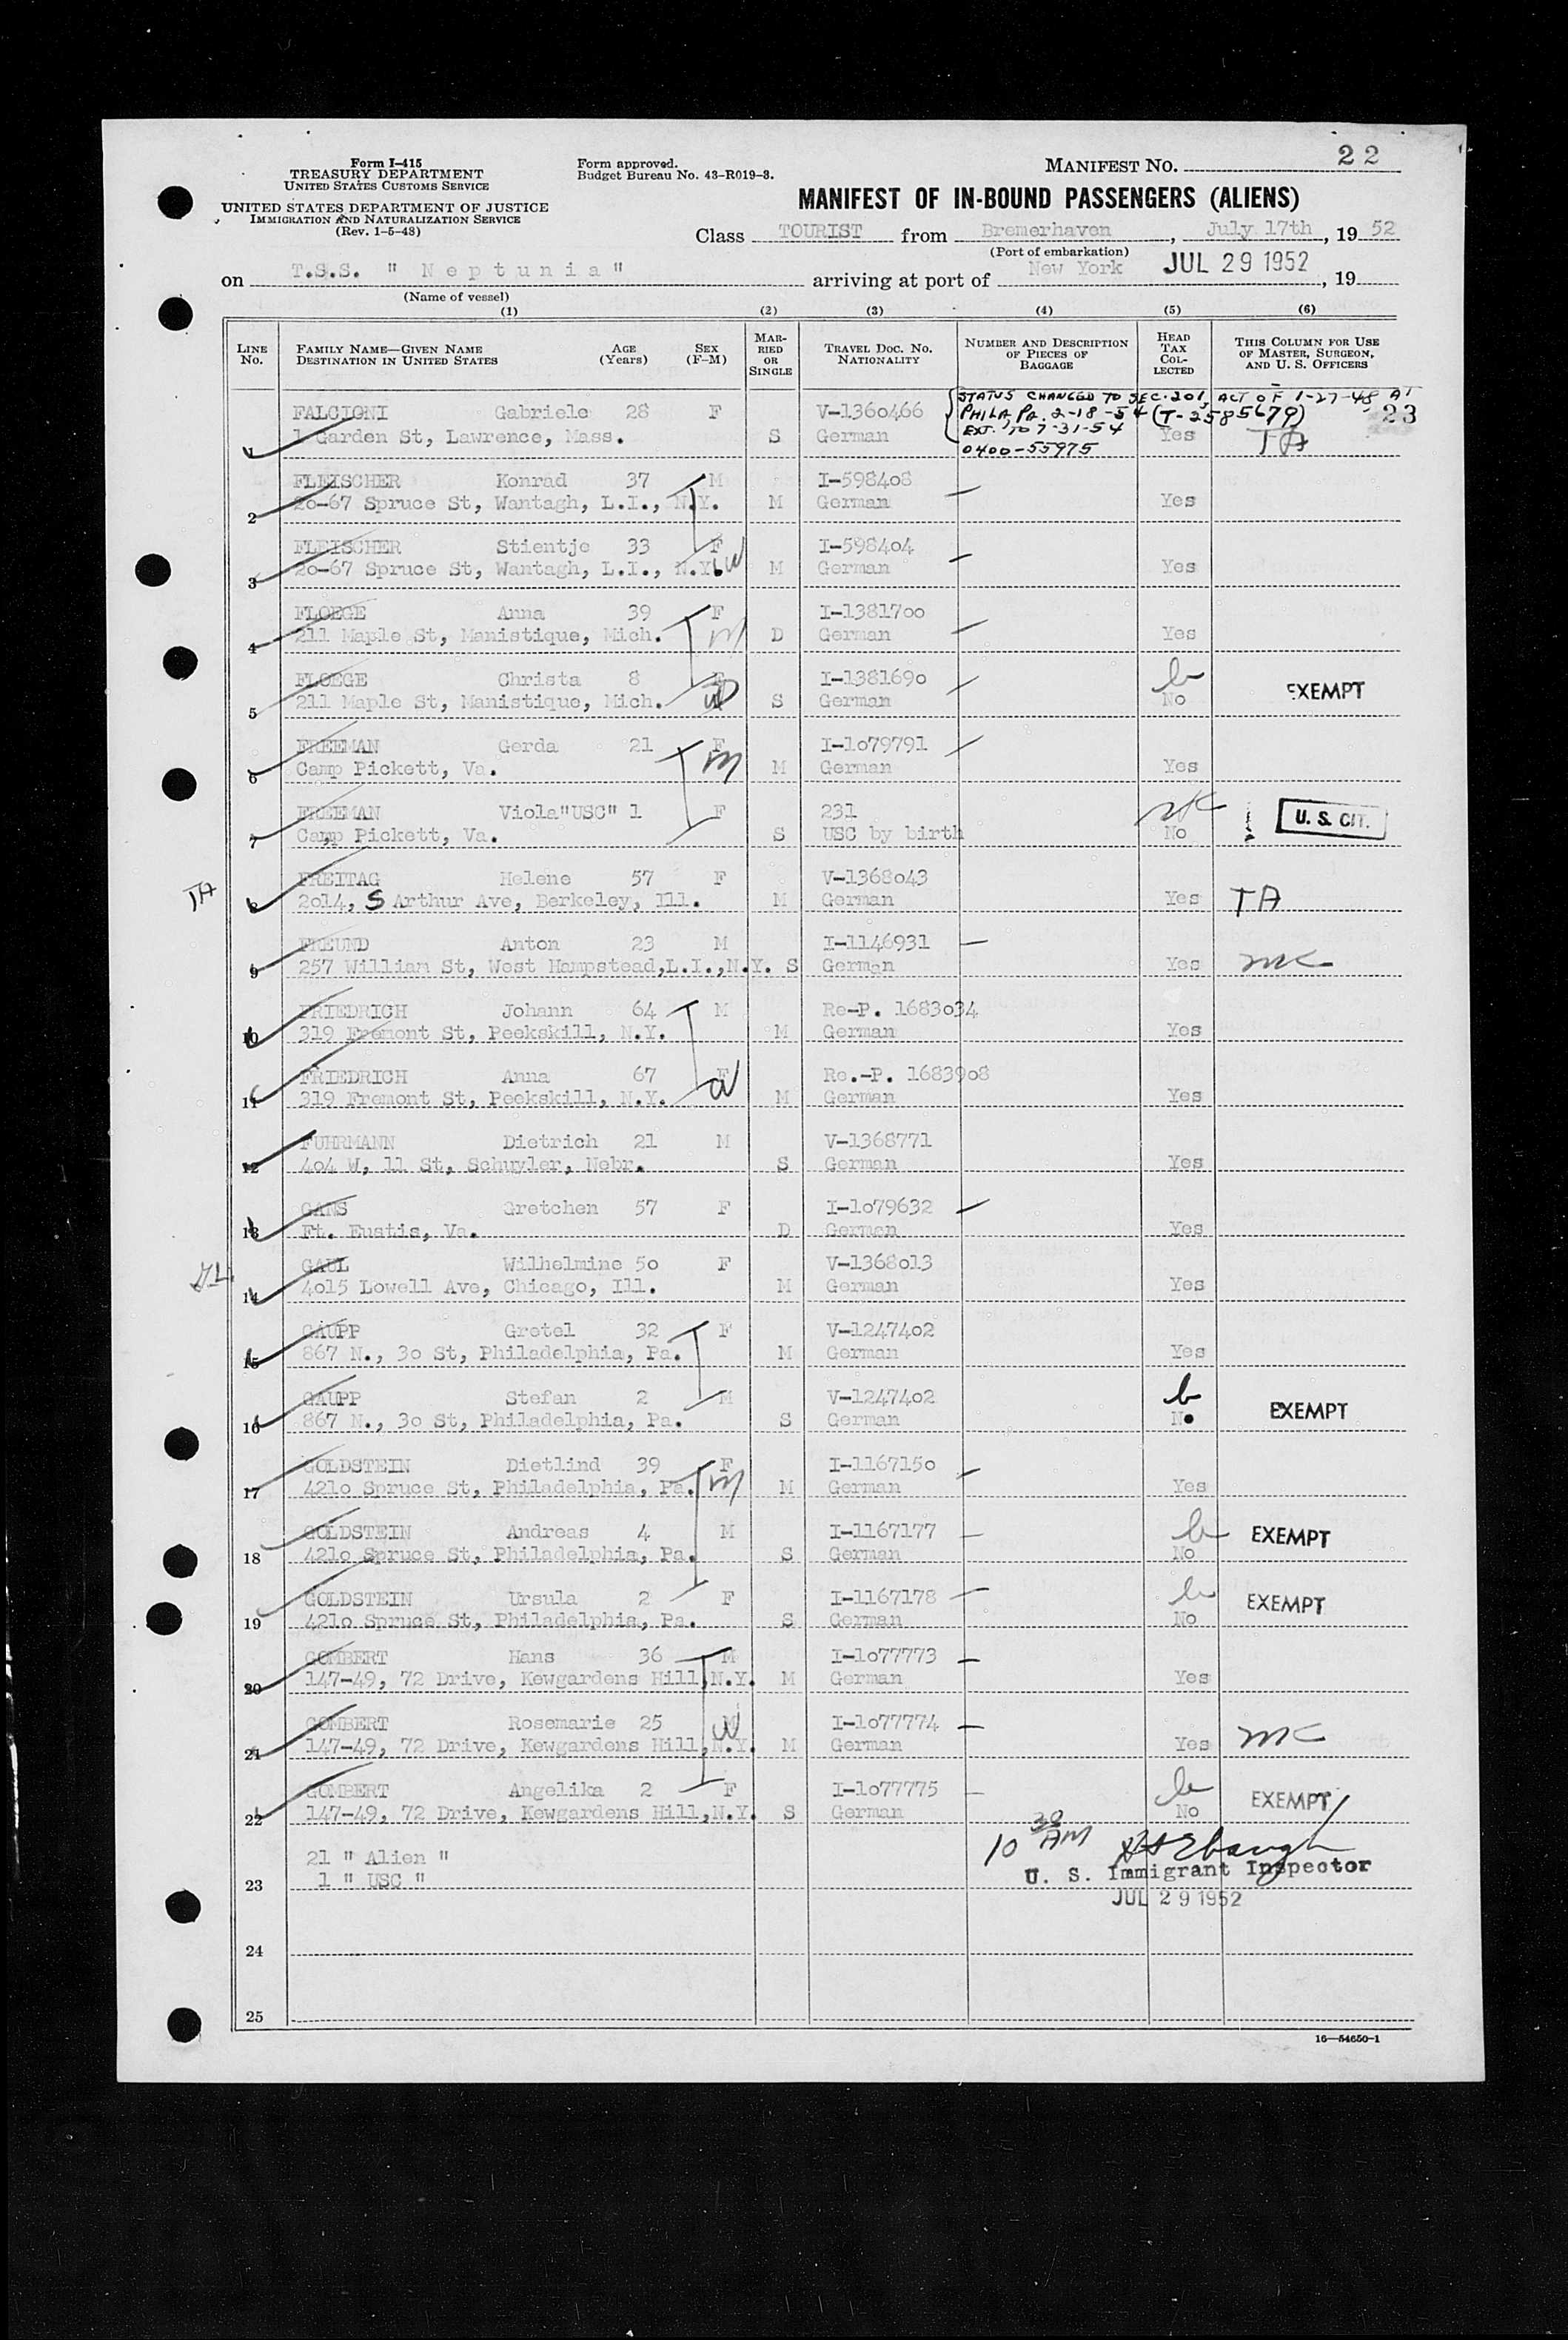 Form I-415
TREASURY DEPARTMENT
UNITED STATES CUSTOMS SERVICE
UNITED STATES DEPARTMENT OF JUSTICE
IMMIGRATION AND NATURALIZATION SERVICE
(Rev. 1-5-48)
Form approved.
Budget Bureau No. 43-R019-3.
MANIFEST NO. 22
MANIFEST OF IN-BOUND PASSENGERS (ALIENS)
Class TOURIST from Bremerhaven, July 17th, 19 52
(Port of embarkation)
on T.S.S. " Neptunia " arriving at port of New York JUL 29 1952, 19
(Name of vessel)
(1) (2) (3) (4) (5) (6)
LINE No. FAMILY NAME—GIVEN NAME DESTINATION IN UNITED STATES AGE (Years) SEX (F-M) MARRIED OR SINGLE TRAVEL DOC. NO. NATIONALITY NUMBER AND DESCRIPTION OF PIECES OF BAGGAGE HEAD TAX COLLECTED THIS COLUMN FOR USE OF MASTER, SURGEON, AND U. S. OFFICERS
STATUS CHANGED TO SEC. 201, ACT OF 1-27-48 AT
PHILA PA. 2-18-54 (T-2585679) 23
EXT. TO 7-31-54
0400-55975
FALCIONI Gabriele 28 F V-1360466
1 1 Garden St, Lawrence, Mass. S German Yes TA
FLEISCHER Konrad 37 M I-598408
2 20-67 Spruce St, Wantagh, L.I., N.Y. M German Yes
FLEISCHER Stientje 33 F I-598404
3 20-67 Spruce St, Wantagh, L.I., N.Y. W M German Yes
FLOEGE Anna 39 F I-1381700
4 211 Maple St, Manistique, Mich. M D German Yes
FLOEGE Christa 8 F I-1381690
5 211 Maple St, Manistique, Mich. S German No EXEMPT
FREEMAN Gerda 21 F I-1079791
6 Camp Pickett, Va. M M German Yes
FREEMAN Viola "USC" 1 F 231
7 Camp Pickett, Va. S USC by birth No U. S. CIT.
FREITAG Helene 57 F V-1368043
TA 8 2014, S Arthur Ave, Berkeley, Ill. M German Yes TA
FREUND Anton 23 M I-1146931
9 257 William St, West Hampstead,L.I.,N.Y. S German Yes MK
FRIEDRICH Johann 64 M Re-P. 1683034
10 319 Fremont St, Peekskill, N.Y. M German Yes
FRIEDRICH Anna 67 F Re.-P. 1683908
11 319 Fremont St, Peekskill, N.Y. W M German Yes
FUHRMANN Dietrich 21 M V-1368771
12 404 W, 11 St, Schuyler, Nebr. S German Yes
GANS Gretchen 57 F I-1079632
13 Ft. Eustis, Va. D German Yes
GAUL Wilhelmine 50 F V-1368013
14 4015 Lowell Ave, Chicago, Ill. M German Yes
GAUPP Gretel 32 F V-1247402
15 867 N., 30 St, Philadelphia, Pa. M German Yes
GAUPP Stefan 2 M V-1247402
16 867 N., 30 St, Philadelphia, Pa. S German No EXEMPT
GOLDSTEIN Dietlind 39 F I-1167150
17 4210 Spruce St, Philadelphia, Pa. M M German Yes
GOLDSTEIN Andreas 4 M I-1167177
18 4210 Spruce St, Philadelphia, Pa. S German No EXEMPT
GOLDSTEIN Ursula 2 F I-1167178
19 4210 Spruce St, Philadelphia, Pa. S German No EXEMPT
GOMBERT Hans 36 M I-1077773
20 147-49, 72 Drive, Kewgardens Hill,N.Y. M German Yes
GOMBERT Rosemarie 25 W I-1077774
21 147-49, 72 Drive, Kewgardens Hill,N.Y. M German Yes MK
GOMBERT Angelika 2 F I-1077775
22 147-49, 72 Drive, Kewgardens Hill,N.Y. S German No EXEMPT
21 " Alien " 10 30 AM
23 1 " USC " U. S. Immigrant Inspector
JUL 29 1952
24
25
16—54650-1